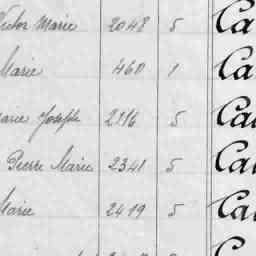 Victor Marie 2048 5 Ca
Marie 460 1 Ca
Marie Joseph 2116 5 Ca
Pierre Marie 2341 5 Ca
Marie 2419 5 Ca